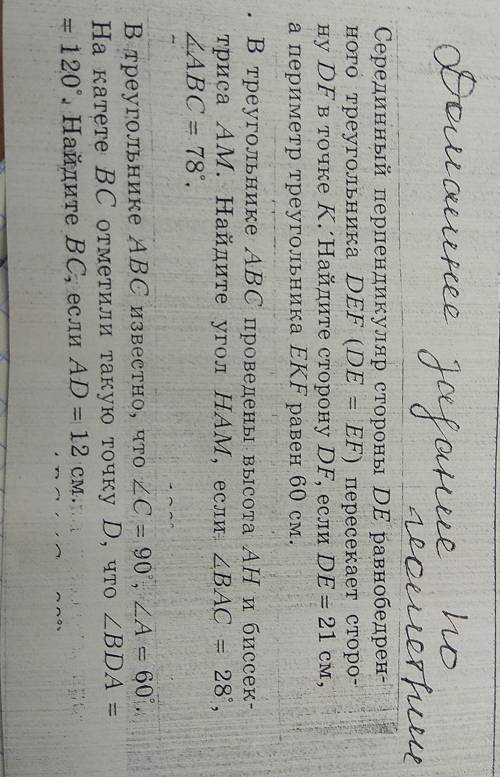 Домашнее задание по
геометрии
Серединный перпендикуляр стороны DE равнобедрен-
ного треугольника DEF (DE = EF) пересекает сторо-
ну DF в точке K. Найдите сторону DF, если DE = 21 см,
а периметр треугольника EKF равен 60 см.
. В треугольнике ABC проведены высота AH и биссек-
триса AM. Найдите угол HAM, если ∠BAC = 28°,
∠ABC = 78°.
В треугольнике ABC известно, что ∠C = 90°, ∠A = 60°.
На катете BC отметили такую точку D, что ∠BDA =
= 120°. Найдите BC, если AD = 12 см.